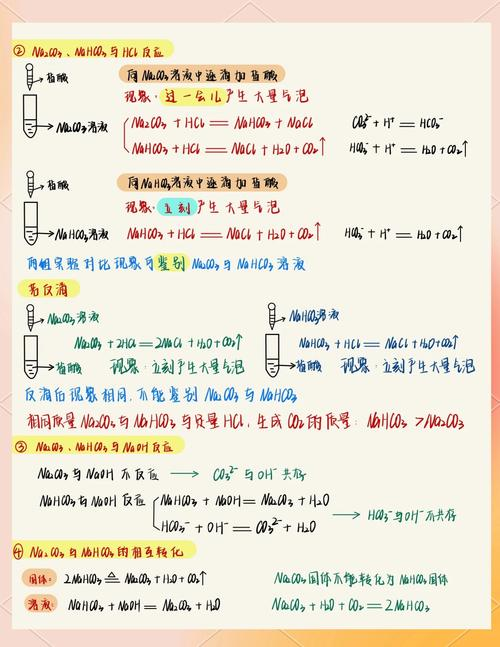 ② Na₂CO₃、NaHCO₃与HCl反应
盐酸
向Na₂CO₃溶液中逐滴加盐酸
现象:过一会儿产生大量气泡
Na₂CO₃溶液
Na₂CO₃ + HCl = NaHCO₃ + NaCl
CO₃²⁻ + H⁺ = HCO₃⁻
NaHCO₃ + HCl = NaCl + H₂O + CO₂↑
HCO₃⁻ + H⁺ = H₂O + CO₂↑
盐酸
向NaHCO₃溶液中逐滴加盐酸
现象:立刻产生大量气泡
NaHCO₃溶液
NaHCO₃ + HCl = NaCl + H₂O + CO₂↑
HCO₃⁻ + H⁺ = H₂O + CO₂↑
两组实验对比现象可鉴别Na₂CO₃与NaHCO₃溶液
若反滴
Na₂CO₃溶液
Na₂CO₃ + 2HCl = 2NaCl + H₂O + CO₂↑
盐酸
现象:立刻产生大量气泡
NaHCO₃溶液
NaHCO₃ + HCl = NaCl + H₂O + CO₂↑
盐酸
现象:立刻产生大量气泡
反滴后现象相同,不能鉴别Na₂CO₃与NaHCO₃
相同质量Na₂CO₃与NaHCO₃与足量HCl,生成CO₂的质量:NaHCO₃ > Na₂CO₃
③ Na₂CO₃、NaHCO₃与NaOH反应
Na₂CO₃与NaOH不反应 → CO₃²⁻与OH⁻共存
NaHCO₃与NaOH反应
NaHCO₃ + NaOH = Na₂CO₃ + H₂O
HCO₃⁻ + OH⁻ = CO₃²⁻ + H₂O
→ HCO₃⁻与OH⁻不共存
④ Na₂CO₃与NaHCO₃的相互转化
固体: 2NaHCO₃ =△= Na₂CO₃ + H₂O + CO₂↑
Na₂CO₃固体不能转化为NaHCO₃固体
溶液: NaHCO₃ + NaOH = Na₂CO₃ + H₂O
Na₂CO₃ + H₂O + CO₂ = 2NaHCO₃